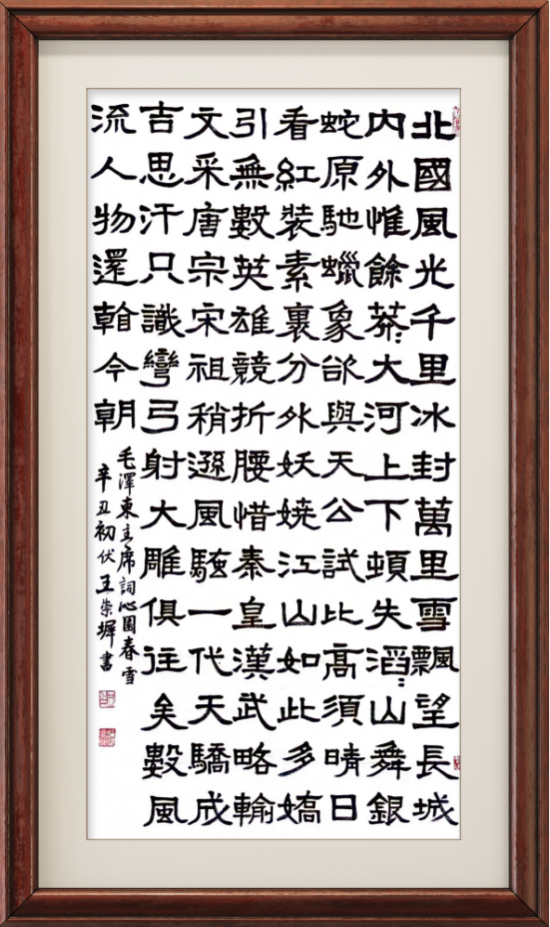 北國風光千里冰封萬里雪飄望長城
内外惟餘莽〻大河上下頓失滔〻山舞銀
蛇原馳蠟象欲與天公試比高須晴日
看紅裝素裹分外妖嬈江山如此多嬌
引無數英雄競折腰惜秦皇漢武略輸
文采唐宗宋祖稍遜風騷一代天驕成
吉思汗只識彎弓射大雕俱往矣數風
流人物還看今朝
毛澤東主席詞沁園春雪
辛丑初伏王崇墀書